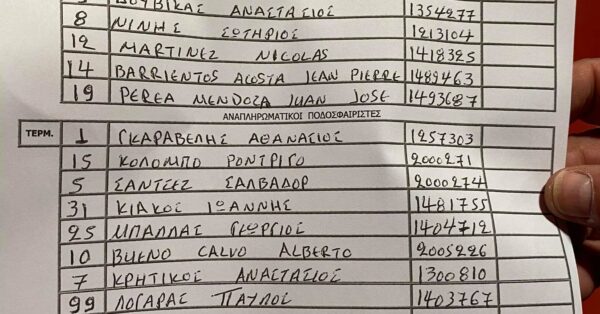 ΔΟΥΒΙΚΑΣ ΑΝΑΣΤΑΣΙΟΣ 1354277
8 ΝΙΝΗΣ ΣΩΤΗΡΙΟΣ 1213104
12 MARTINEZ NICOLAS 1418325
14 BARRIENTOS ACOSTA JEAN PIERRE 1489463
19 PEREA MENDOZA JUAN JOSE 1493687
ΑΝΑΠΛΗΡΩΜΑΤΙΚΟΙ ΠΟΔΟΣΦΑΙΡΙΣΤΕΣ
ΤΕΡΜ. 1 ΓΚΑΡΑΒΕΛΗΣ ΑΘΑΝΑΣΙΟΣ 1257303
15 ΚΟΛΟΜΠΟ ΡΟΝΤΡΙΓΟ 2000271
5 ΣΑΝΤΣΕΖ ΣΑΛΒΑΔΟΡ 2000274
31 ΚΙΑΚΟΣ ΙΩΑΝΝΗΣ 1481755
25 ΜΠΑΛΛΑΣ ΓΕΩΡΓΙΟΣ 1404712
10 BUENO CALVO ALBERTO 2005226
7 ΚΡΗΤΙΚΟΣ ΑΝΑΣΤΑΣΙΟΣ 1300810
99 ΛΟΓΑΡΑΣ ΠΑΥΛΟΣ 1403767